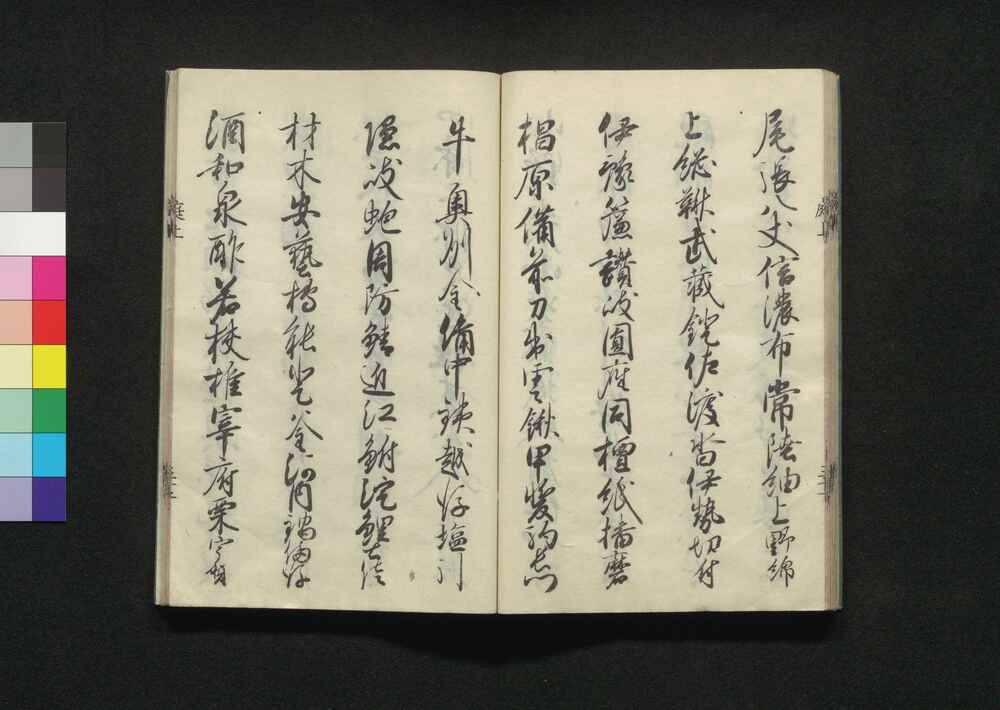 尾張八丈信濃布常陸紬上野綿
上総鞦武蔵鐙佐渡沓伊勢切付
伊豫簾讃岐圓座同檀紙播磨
椙原備前刀出雲鍬甲斐駒長門
牛奥州金備中鉄越後塩引
隠岐鮑周防鯖近江鮒淀鯉土佐
材木安藝榑能登釜河内鍋備後
酒和泉酢若狭椎宰府栗宇賀
庭上
庭上